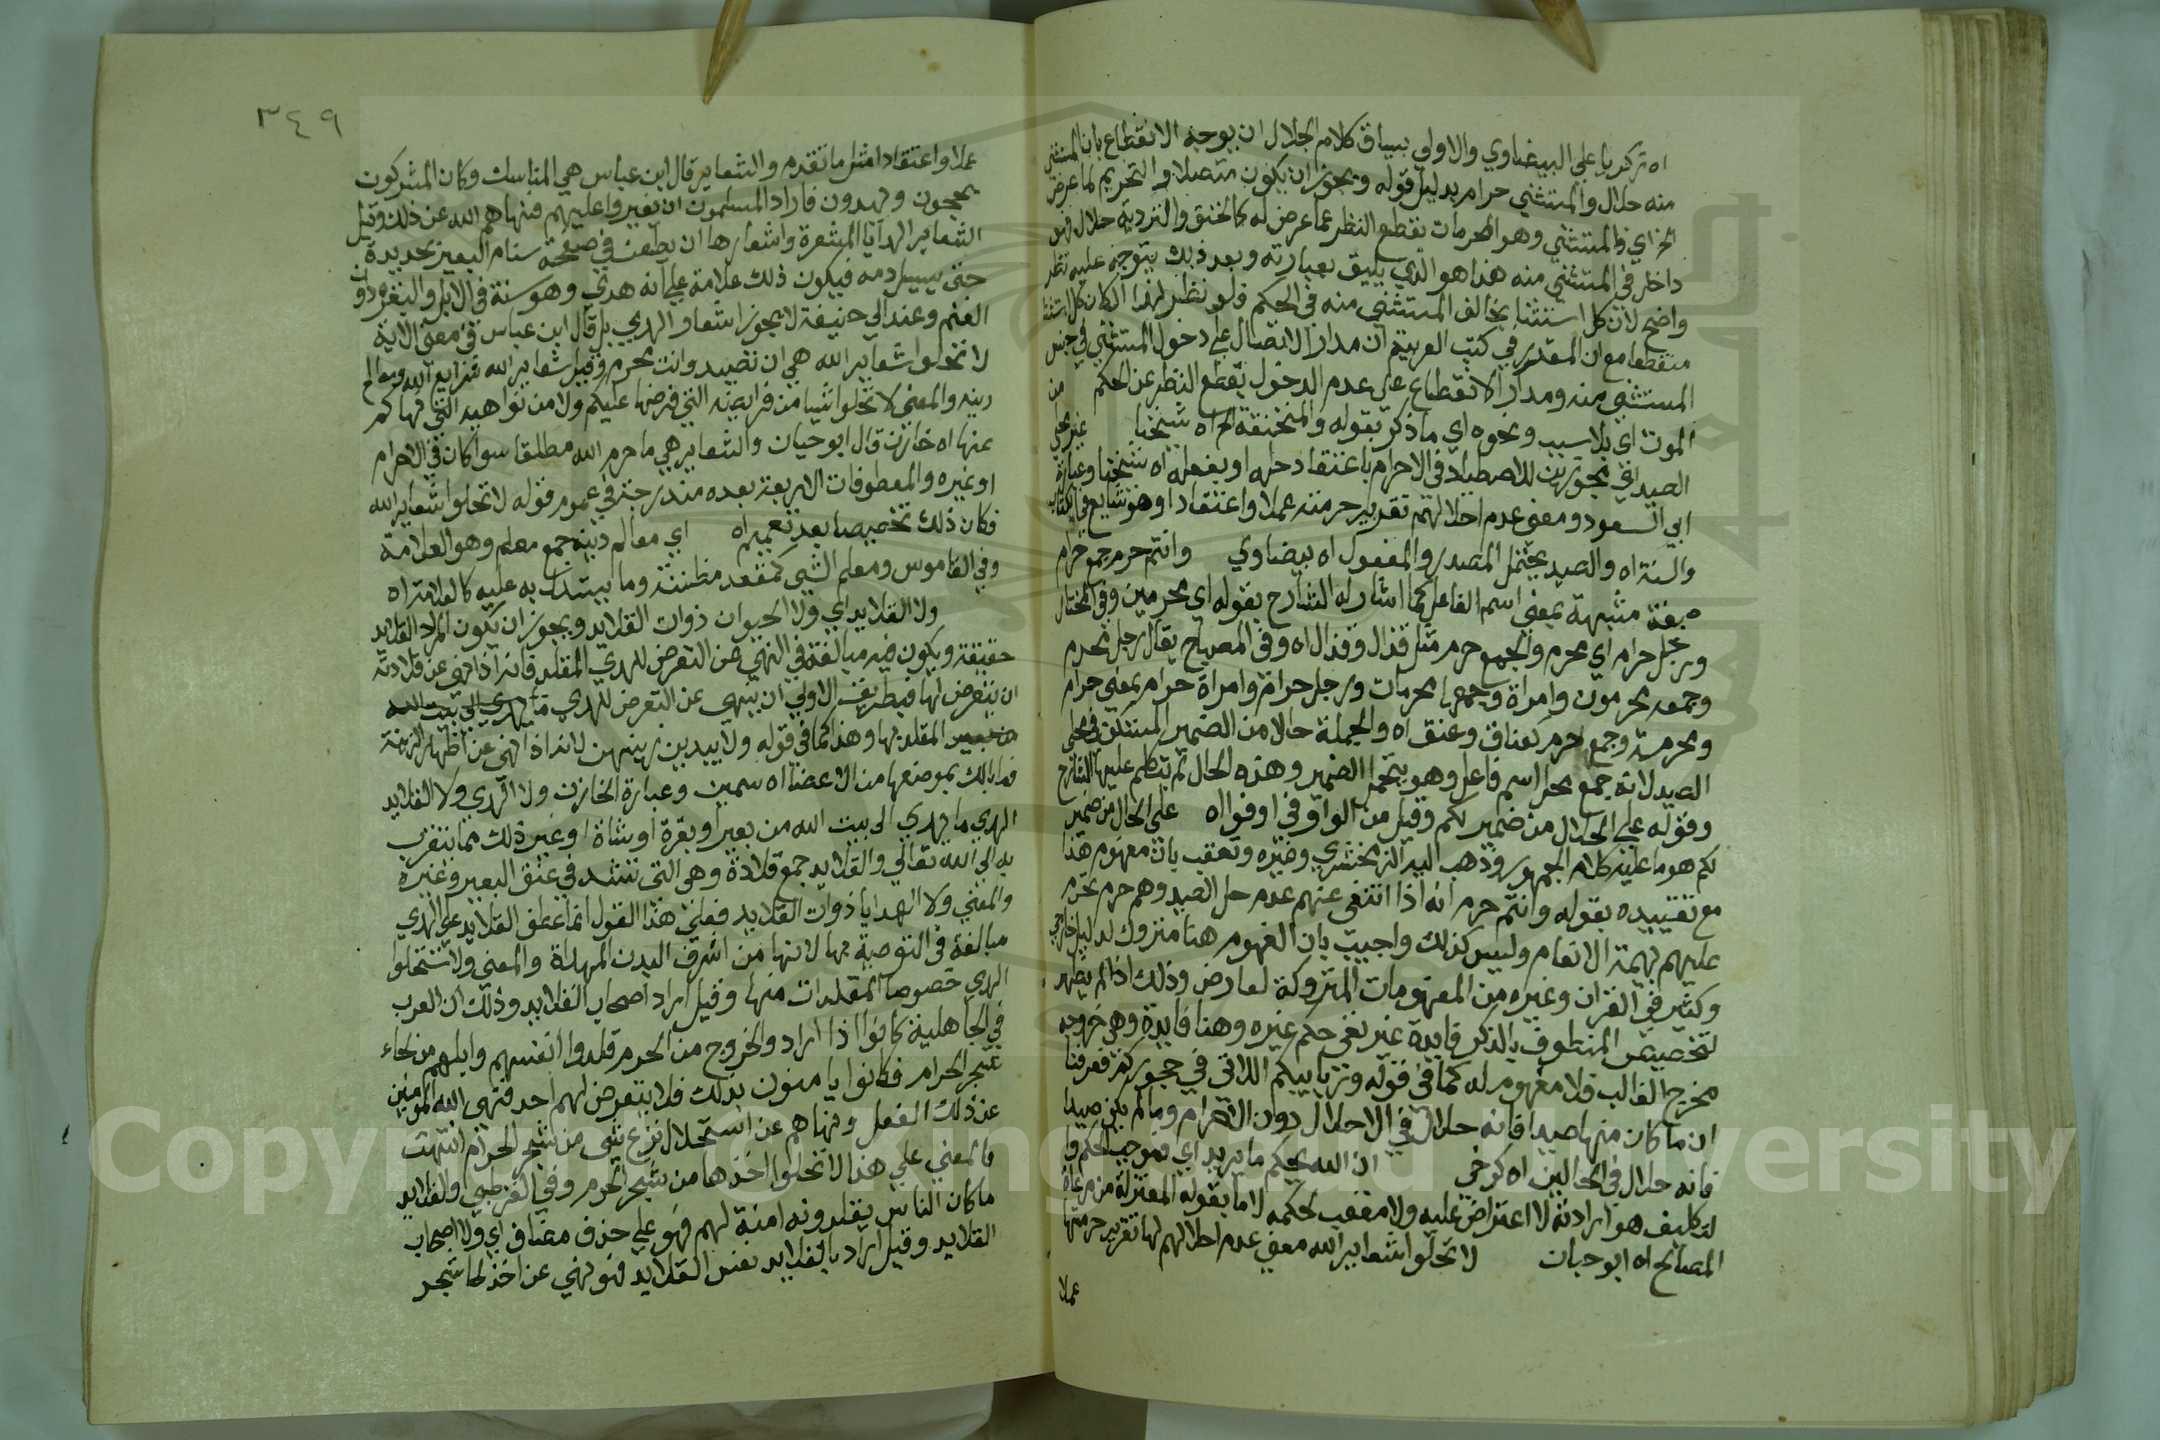 اه تركريا علي البيضاوي والاولي بسياق كلام الجلال ان يوجه الانقطاع بان المستثني
منه حلال والمستثني حرام بدليل قوله ويجوز ان يكون متصلا والتحريم لما عرض
الخ اي فالمستثني وهو المحرمات بقطع النظر عما عرض له كالخنق والتردية حلال فهن
داخل في المستثني منه هذا هو الذي يليق بعبارته وبعد ذلك يتوجه عليه نظر
واضح لان كل استثنا يخالف المستثني منه في الحكم فلو نظر لهذا لكان كل استثنا
منقطعا مع ان المقدر في كتب العربية ان مدار الاتصال علي دخول المستثني في جنس
المستثني منه ومدار الانقطاع علي عدم الدخول بقطع النظر عن الحكم من
الموت اي بلا سبب ونحوه اي ما ذكر بقوله والمنخنقة الخ اه شيخنا غير محلي
الصيد اي مجوزين للاصطياد في الاحرام باعتقاد حله او بفعله اه شيخنا وعبارة
ابي السعود ومعني عدم احلالهم تقرير حرمته عملا واعتقادا وهو شايع في الكتاب
والسنة اه والصيد يحتمل المصدر والمفعول اه بيضاوي وانتم حرم جمع حرام
صفة مشبهة بمعني اسم الفاعل كما اشار له الشارح بقوله اي محرمين وفي المختار
ورجل حرام اي محرم والجمع حرم مثل قذال وقذل اه وفي المصباح يقال رجل محرم
وجمعه محرمون وامراة وجمعها محرمات ورجل حرام وامراة حرام بمعني حرام
ومحرمة وجمع حرم كعناق وعنق اه والجملة حال من الضمير المستكن في محلي
الصيد لانه جمع محل اسم فاعل وهو يتحمل الضمير وهذه الحال لم يتكلم عليها الشارح
وقوله علي الحال من ضمير لكم وقيل من الواو في اوفوا اه علي الحال من ضمير
لكم هو ما عليه كلام الجمهور وذهب اليه الزمخشري وغيره وتعقب بان مفهوم هذا
مع تقييده بقوله وانتم حرم انه اذا انتفي عنهم عدم حل الصيد وهم حرم تحرم
عليهم بهيمة الانعام وليس كذلك واجيب بان المفهوم هنا متروك لدليل خارجي
وكثير في القران وغيره من المفهومات المتروكة لعارض وذلك اذا لم يظهر
لتخصيص المنطوق بالذكر فايدة غير نفي حكم غيره وهنا فايدة وهي خروجه
مخرج الغالب فلا مفهوم له كما في قوله وربايبكم اللاتي في حجوركم فعرفنا
ان ما كان منها صيدا فانه حلال في الاحلال دون الاحرام وما لم يكن صيدا
فانه حلال في الحالين اه كرخي ان الله يحكم ما يريد اي فموجب الحكم و
التكليف هو ارادته لا اعتراض عليه ولا معقب لحكمه لا ما يقوله المعتزلة من مراعاة
المصالح اه ابو حيان لا تحلوا شعاير الله معني عدم احلالهم لها تقرير حرمتها
عملا
٣٤٩
عملا واعتقادا مثل ما تقدم والشعاير قال ابن عباس هي المناسك وكان المشركون
يحجون ويهدون فاراد المسلمون ان يغيروا عليهم فنهاهم الله عن ذلك وقيل
الشعاير الهدايا المشعرة واشعارها ان يطعن في صفحة سنام البعير بحديدة
حتي يسيل دمه فيكون ذلك علامة علي انه هدي وهو سنة في الابل والبقر دون
الغنم وعند ابي حنيفة لا يجوز اشعار الهدي بل قال ابن عباس في معني الاية
لا تحلوا شعاير الله هي ان تصيد وانت محرم وقيل شعاير الله شرايع الله ومعالم
دينه والمعني لا تحلوا شيا من فرايضه التي فرضها عليكم ولا من نواهيه التي نهاكم
عنها اه خازن قال ابو حيان والشعاير هي ما حرم الله مطلقا سوا كان في الاحرام
او غيره والمعطوفات الاربعة بعده مندرجة في عموم قوله لا تحلوا شعاير الله
فكان ذلك تخصيصا بعد تعميم اه اي معالم دينه جمع معلم وهو العلامة
وفي القاموس ومعلم الشي كمقعد مظنته وما يستدل به عليه كالعلامة اه
ولا القلايد اي ولا الحيوان ذوات القلايد ويجوز ان يكون المراد القلايد
حقيقة ويكون فيه مبالغة في النهي عن التعرض للهدي المقلد فانه اذا نهي عن قلادته
ان يتعرض لها فبطريق الاولي ان ينهي عن التعرض للهدي ما يهدي الي بيت الله
المقلد بها وهذا كما في قوله ولا يبدين زينتهن لانه اذا نهي عن اظهار الزينة
فما بالك بموضعها من الاعضا اه سمين وعبارة الخازن ولا الهدي ولا القلايد
الهدي ما يهدي الي بيت الله من بعير او بقرة او شاة او غير ذلك مما يتقرب
به الي الله تعالي والقلايد جمع قلادة وهي التي تشد في عنق البعير وغيره
والمعني ولا الهدايا ذوات القلايد فعلي هذا القول انما عطف القلايد علي الهدي
مبالغة في التوصية بها لانها من اشرف البدن المهداة والمعني ولا تستحلوا
الهدي خصوصا المقلدات منها وقيل اراد اصحاب القلايد وذلك ان العرب
في الجاهلية كانوا اذا ارادوا الخروج من الحرم قلدوا انفسهم وابلهم من لحاء
شجر الحرام فكانوا يامنون بذلك فلا يتعرض لهم احد فنهي الله المومنين
عن ذلك الفعل ونهاهم عن استحلال نزع شي من شجر الحرم انتهت
فالمعني علي هذا لا تحلوا اخذها من شجر الحرم وفي القرطبي والقلايد
ما كان الناس يقلدونه امنة لهم فهو علي حذف مضاف اي ولا اصحاب
القلايد وقيل اراد بالقلايد نفس القلايد فهو نهي عن اخذ لحا شجر
Copyright © King Saud University